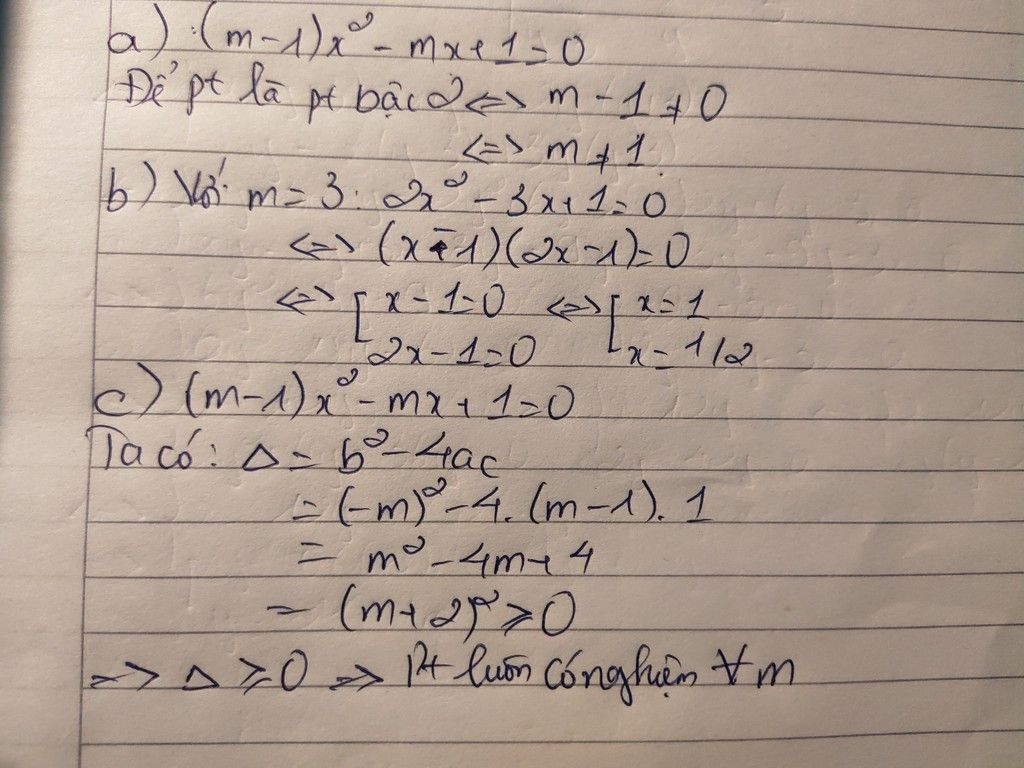 a) (m-1)x² - mx + 1 = 0
Để pt là pt bậc 2 <=> m - 1 ≠ 0
<=> m ≠ 1.
b) Với m = 3: 2x² - 3x + 1 = 0
<=> (x-1)(2x-1) = 0
<=> [ x - 1 = 0 <=> [ x = 1
2x - 1 = 0 x = 1/2
c) (m-1)x² - mx + 1 = 0
Ta có: Δ = b² - 4ac
= (-m)² - 4.(m-1).1
= m² - 4m + 4
= (m+2)² ≥ 0
=> Δ ≥ 0 => Pt luôn có nghiệm ∀ m